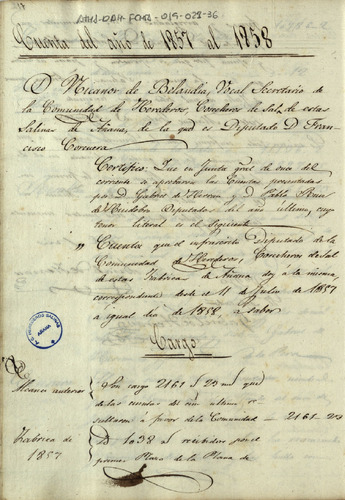 ATHA-DAH-FCMA-019-028-36
Cuenta del año de 1857 al 1858
D. Nicanor de Belandia, Vocal Secretario de
la Comunidad de Herederos, Cosecheros de Sal de estas
Salinas de Añana, de la que es Diputado D. Fran-
cisco Corcuera
Certifico: Que en Junta gral de once del
corriente se aprobaron las Cuentas presentadas
por D. Gabriel de Herran y D. Pablo Ruiz
de Diputados del año último, cuyo
tenor literal es el siguiente
" Cuenta que el infrascrito Diputado de la
Comunidad de Herederos, Cosecheros de Sal
de estas Fabrica de Añana doy a la misma,
correspondiente desde el 11 de Julio de 1857
a igual dia de 1858, a saber
Cargo
Alcance anterior
Son cargo 2161 rs 23 ms que
de las cuentas del año ultimo re-
sultaron a favor de la Comunidad — 2161-23
Fabrica de
1857
D. 1038 rs recibidos por el
primer Plazo de la Plana de
AÑANA